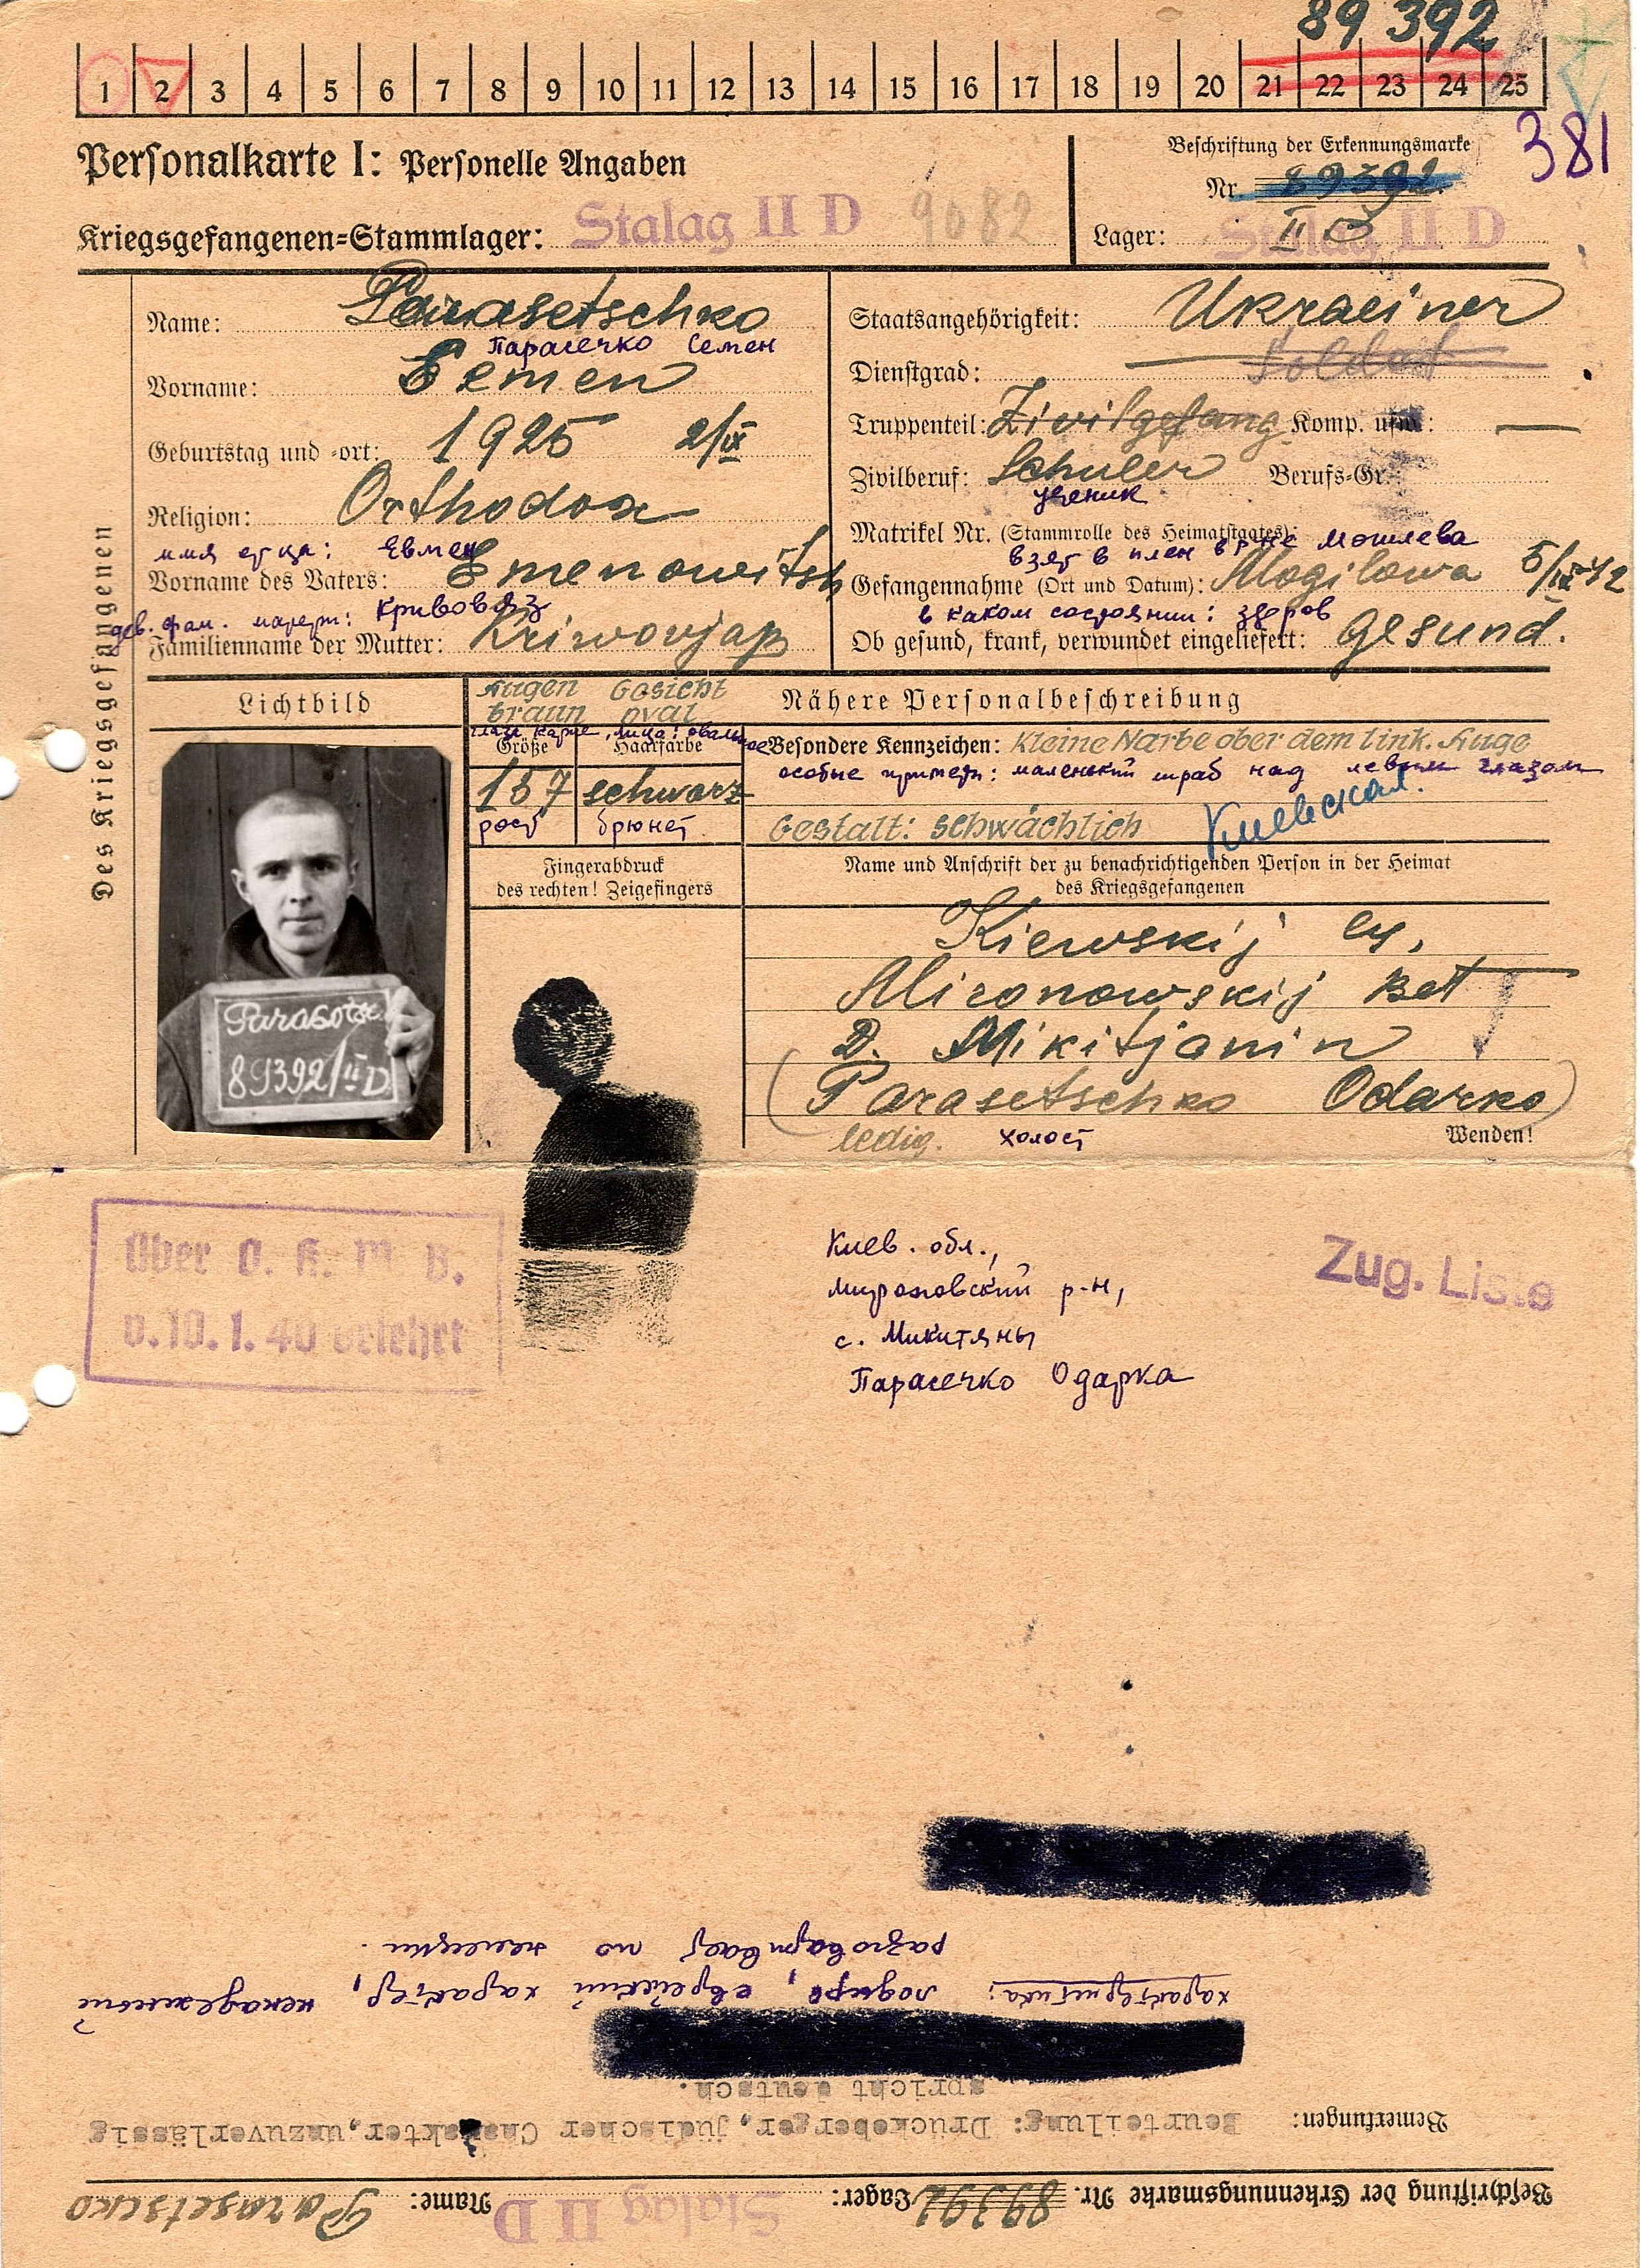 89 392
1 2 3 4 5 6 7 8 9 10 11 12 13 14 15 16 17 18 19 20 21 22 23 24 25
381
Personalkarte I: Personelle Angaben
Kriegsgefangenen-Stammlager: Stalag II D 9082
Beschriftung der Erkennungsmarke
Nr. 89392
Lager: II D Stalag II D
Des Kriegsgefangenen
Name: Parasetschko
Парасечко Семен
Vorname: Semen
Geburtstag und -ort: 1925 2/IX
Religion: Orthodox
имя отца: Евмен
Vorname des Vaters: Emenowitsch
дев. фам. матери: Кривовяз
Familienname der Mutter: Kriwowjas
Staatsangehörigkeit: Ukrainer
Dienstgrad: Soldat
Truppenteil: Zivilgefang Komp. usw.: —
Zivilberuf: Schuler Berufs-Gr.:
ученик
Matrikel Nr. (Stammrolle des Heimatstaates):
взят в плен в р-не Могилева
Gefangennahme (Ort und Datum): Mogilowa 5/IX 42
в каком состоянии: здоров
Ob gesund, krank, verwundet eingeliefert: Gesund.
Lichtbild
Augen Gesicht
braun oval
глаза карие, лицо: овальное
Größe Haarfarbe
157 schwarz
рост брюнет
Nähere Personalbeschreibung
Besondere Kennzeichen: Kleine Narbe ober dem link. Auge
особые приметы: маленький шраб над левым глазом
Gestalt: schwächlich Киевская.
Fingerabdruck
des rechten! Zeigefingers
Name und Anschrift der zu benachrichtigenden Person in der Heimat
des Kriegsgefangenen
Kiewskij
Mironowskij
D. Mikitjanin
(Parasetschko Odarko)
ledig. холост
Wenden!
89392/II D
Über O. K. W. B.
v. 10. 1. 40 belehrt
Киев. обл.,
Мироновский р-н,
с. Микитяны
Парасечко Одарка
Zug. Liste
Beschriftung der Erkennungsmarke Nr. 89392 Lager: Stalag II D Name: Parasetschko
Bemerkungen: Beurteilung: Drückeberger, jüdischer Charakter, unzuverlässig
spricht deutsch.
характеристика: лодырь, еврейский характер, ненадежный
разговаривает по немецки.